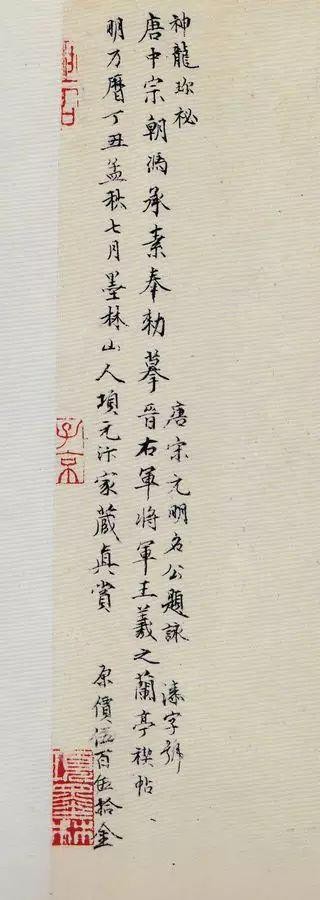 神龍珎祕
唐宋元明名公題詠 漆字號
唐中宗朝馮承素奉勅摹晉右軍将軍王羲之蘭亭禊帖
明万曆丁丑孟秋七月墨林山人項元汴家藏真賞 原價伍百伍拾金
子京
項墨林